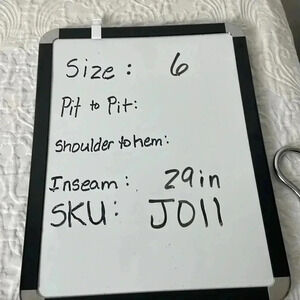 Size: 6
Pit to Pit:
Shoulder to hem:
Inseam: 29in
SKU: J011